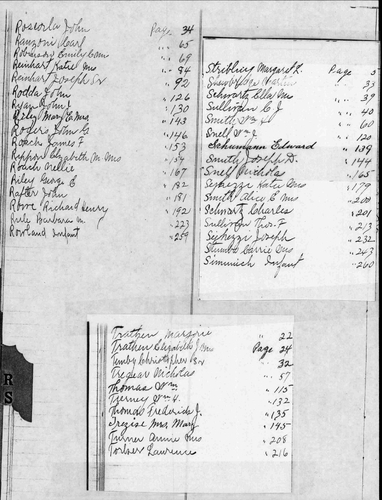 Roscorla John Page 34
Ranzoni Carl " 65
Robinson Emily C Mrs " 69
Reinhart Katie Mrs " 84
Reinhart Joseph Sr " 92
Rodda John " 126
Ryan John J. " 130
Riley Mary E. Mrs " 143
Rogers John G " 146
Roach James F " 153
Rippon Elizabeth M. Mrs " 157
Roach Nellie " 167
Riley George E " 182
Rafter John " 181
Rowe Richard Henry " 192
Rule Barbara M. " 223
Rowland Infant " 259
Stribley Margaret L. Page 5
" 33
Schwartz Ella Mrs " 39
Sullivan C J " 40
Smith Wm H " 60
Snell W. J. " 120
Schumann Edward " 139
Smith Joseph D. " 144
Snell Nicholas " 165
Sighezzi Katie Mrs " 179
Smith Alice E Mrs " 200
Schwartz Charles " 201
Sullivan Thos. F " 213
Sighezzi Joseph " 232
Carrie Mrs " 243
Simmich Infant " 260
Trathen Marjorie " 22
Trathen Elizabeth J Mrs Page 24
Timby Christopher Sr " 32
Tregear Nicholas " 57
Thomas Wm " 115
Tierney Wm H. " 132
Thomas Frederick J. " 135
Tregise Mrs. Mary " 145
Turner Annie Mrs " 208
Lawrence " 216
RS